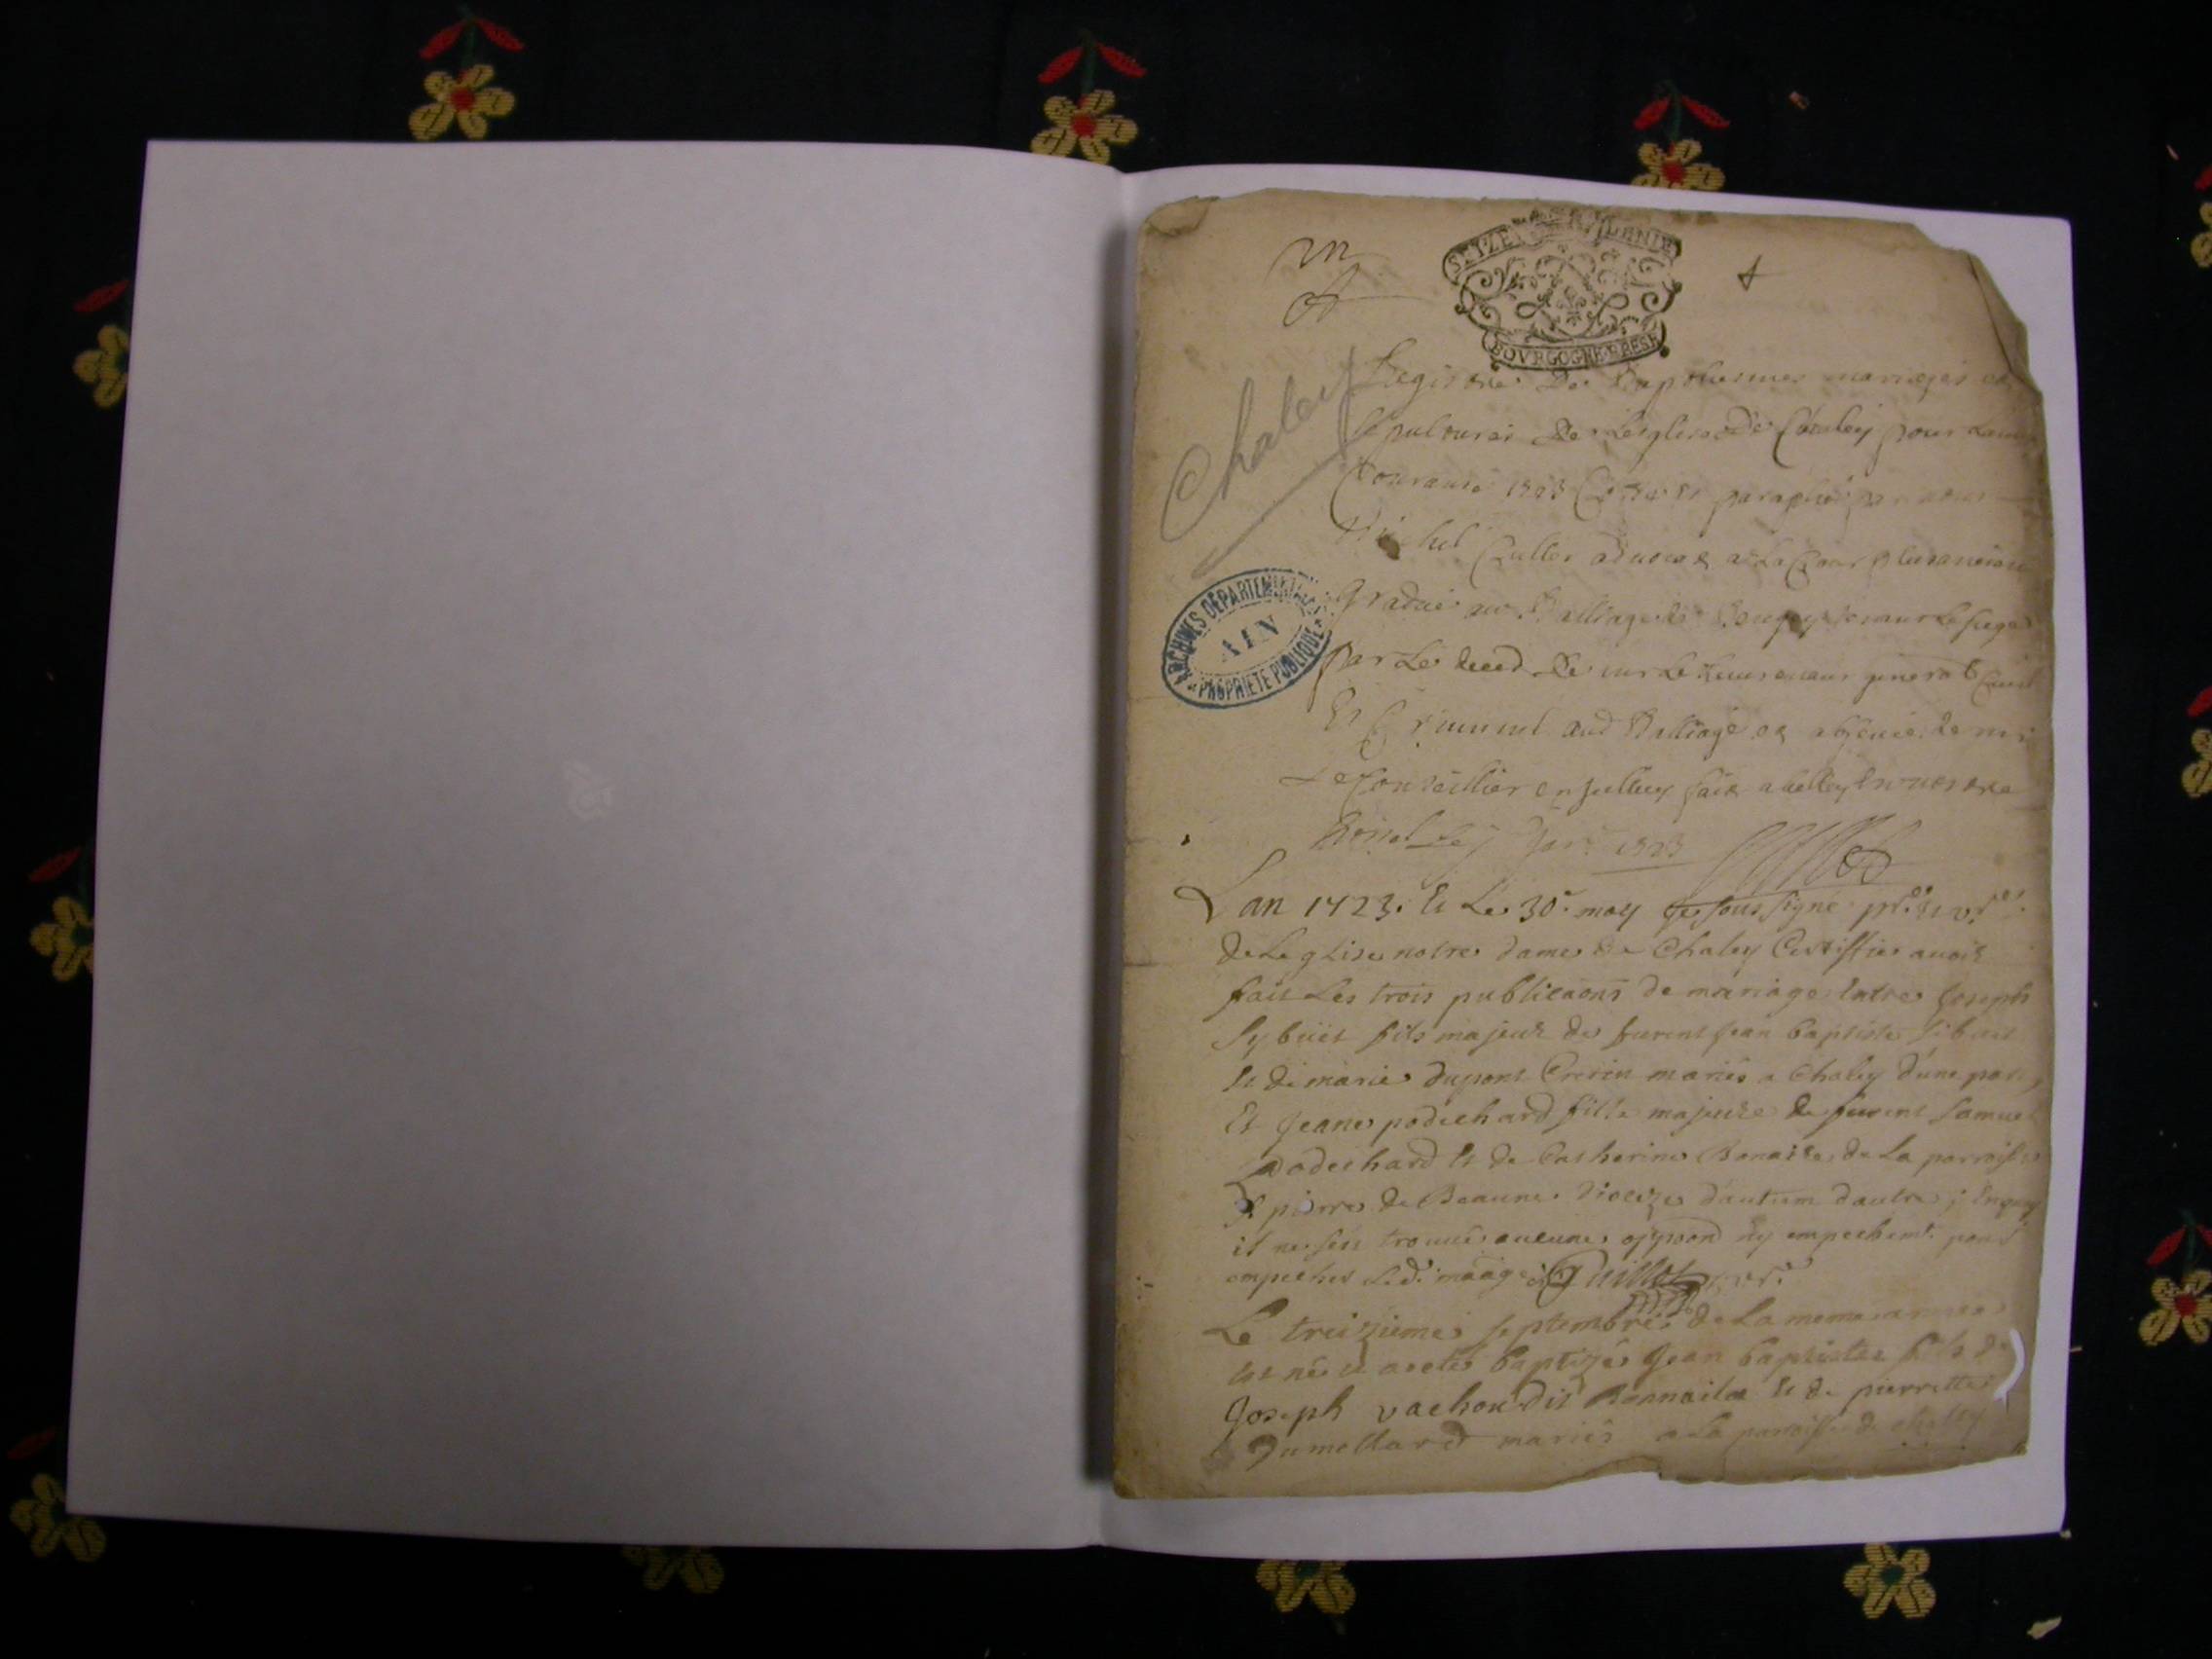 BOVRGOGNE BRESE
Chaley
Registre Des Baptesmes mariages et
sepultures De Leglise De Chaley pour Lannee
Courante 1723 Cotté Et paraphé par nous
Michel Cullet aduocat a La Cour plus ancien
Gradué au Balliage de Bugey tenant Le siege
par Le deced De mr Le Lieutenant general Ciuil
Et Criminel aud Balliage et absence de mr
Le Conseillier en fait a belley En nostre
hostel Le Janr 1723
ARCHIVES DEPARTEMENTALES
AIN
PROPRIETE PUBLIQUE
Lan 1723. Et Le 30e may je sous signé ptre et vre
de Leglise notre dame de Chaley Certiffie auoir
fait Les trois publicaons de mariage Entre Joseph
Sybüet fils majeur de furent Jean baptiste Sibuet
Et de marie dupont mariés a Chaley d'une part,
Et Jeane podechard fille majeure de furent Samuel
podechard Et de Catherine de La parroisse
St pierre de Beaune Dioceze d'autum dautre ; Enquoy
il ne sest trouué aucune oppoond ny empechemt pour
empecher Led. maage Guillot vre
Le treizieme septembre de La meme année
Est né et a eté baptizé Jean baptiste fils de
Joseph vachon dit Bonnaila Et de pierrette
Dumollard mariés a La parroisse de chaley